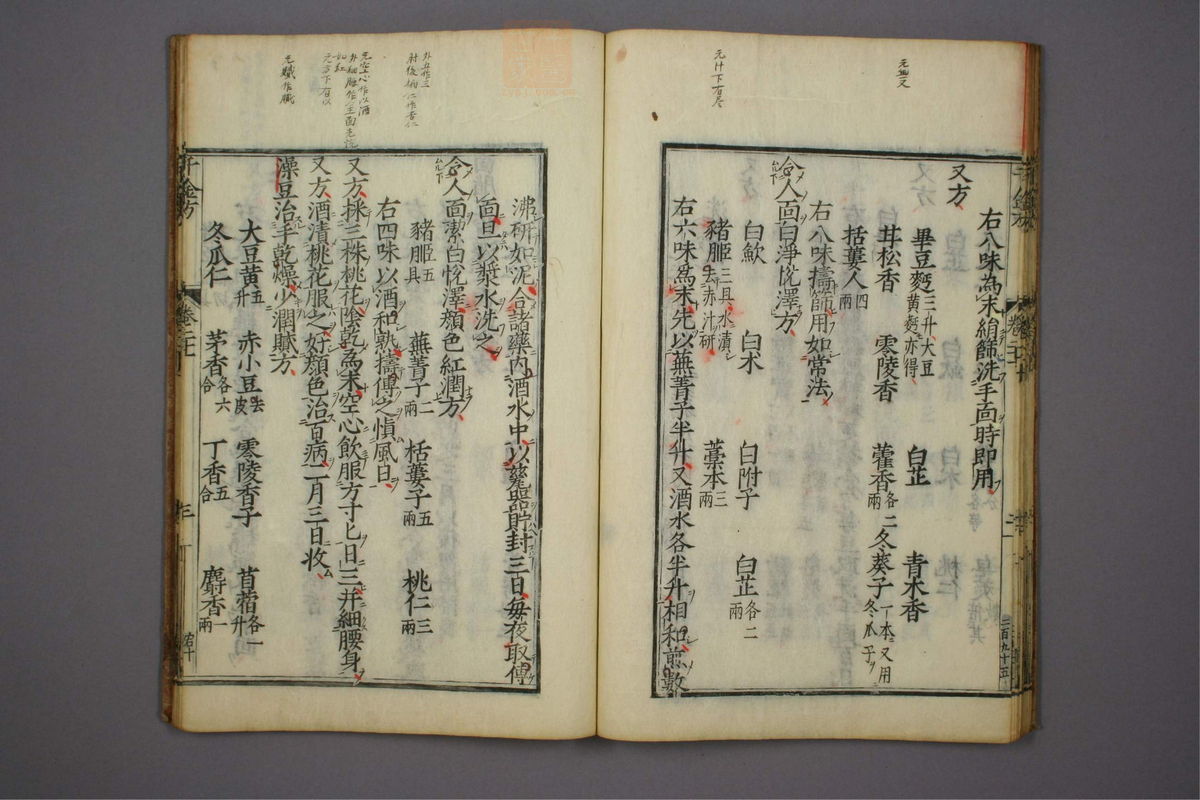 右八味為末絹篩洗手面時即用
又方
畢豆麪三升大豆黄麪亦得 白芷 青木香
甘松香 零陵香 藿香各二兩 冬葵子一本云用冬瓜子
栝蔞人四兩
右八味擣篩用如常法
令人面白淨悅澤方
白歛 白朮 白附子 白芷各二兩
豬胵三具水漬去赤汁研 藁本三兩
右六味為末先以蕪菁子半升又酒水各半升相和煎數
沸研如泥合諸藥內酒水中以甆器貯封三日每夜取傅
面旦以漿水洗之
令人面潔白悅澤顏色紅潤方
豬胵五具 蕪菁子二兩 栝蔞子五兩 桃仁三兩
右四味以酒和熟擣傅之慎風日
又方採三株桃花陰乾為末空心飲服方寸匕日三幷細腰身
又方酒漬桃花服之好顏色治百病三月三日收
澡豆治手乾燥少潤膩方
大豆黄五升 赤小豆去皮 零陵香子 苜蓿各一升
冬瓜仁 茅香各六合 丁香五合 麝香一兩
千金方
卷二十
三百九十五
元血又
元汁下有尽